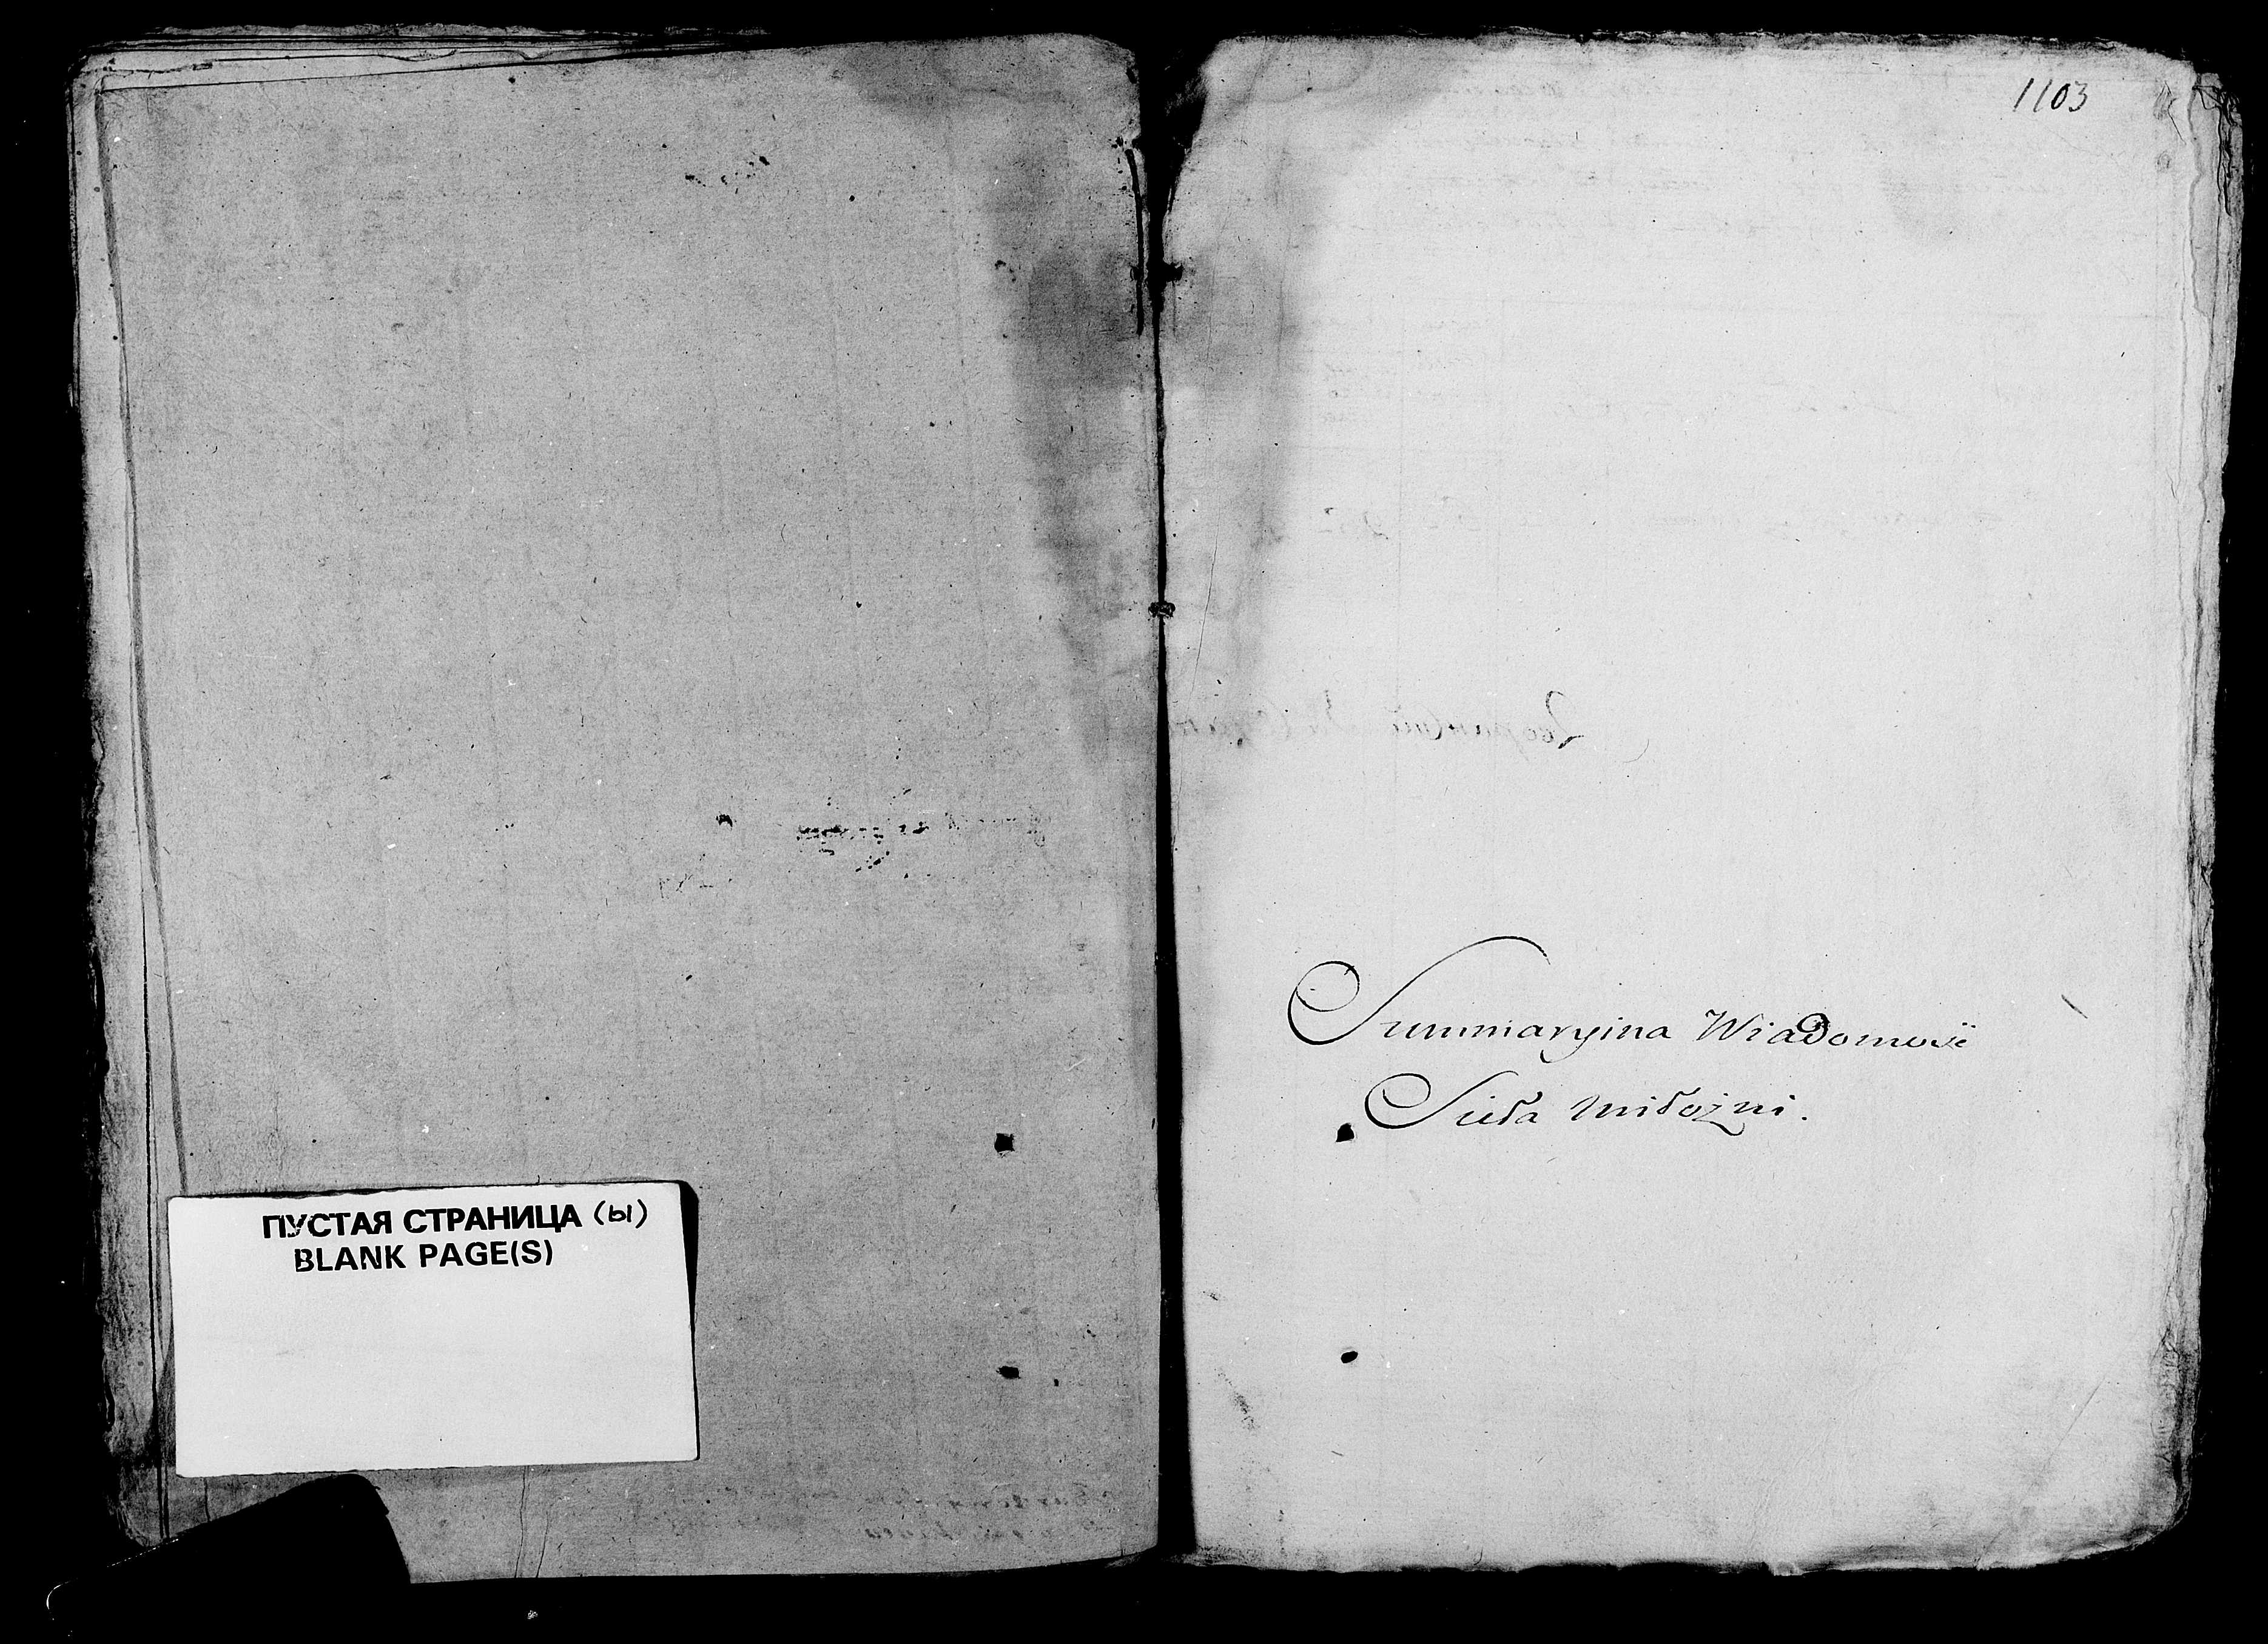 ПУСТАЯ СТРАНИЦА (ы)
BLANK PAGE(S)
1103
Summaryina Wiadomosć
Sieła Miłożni.